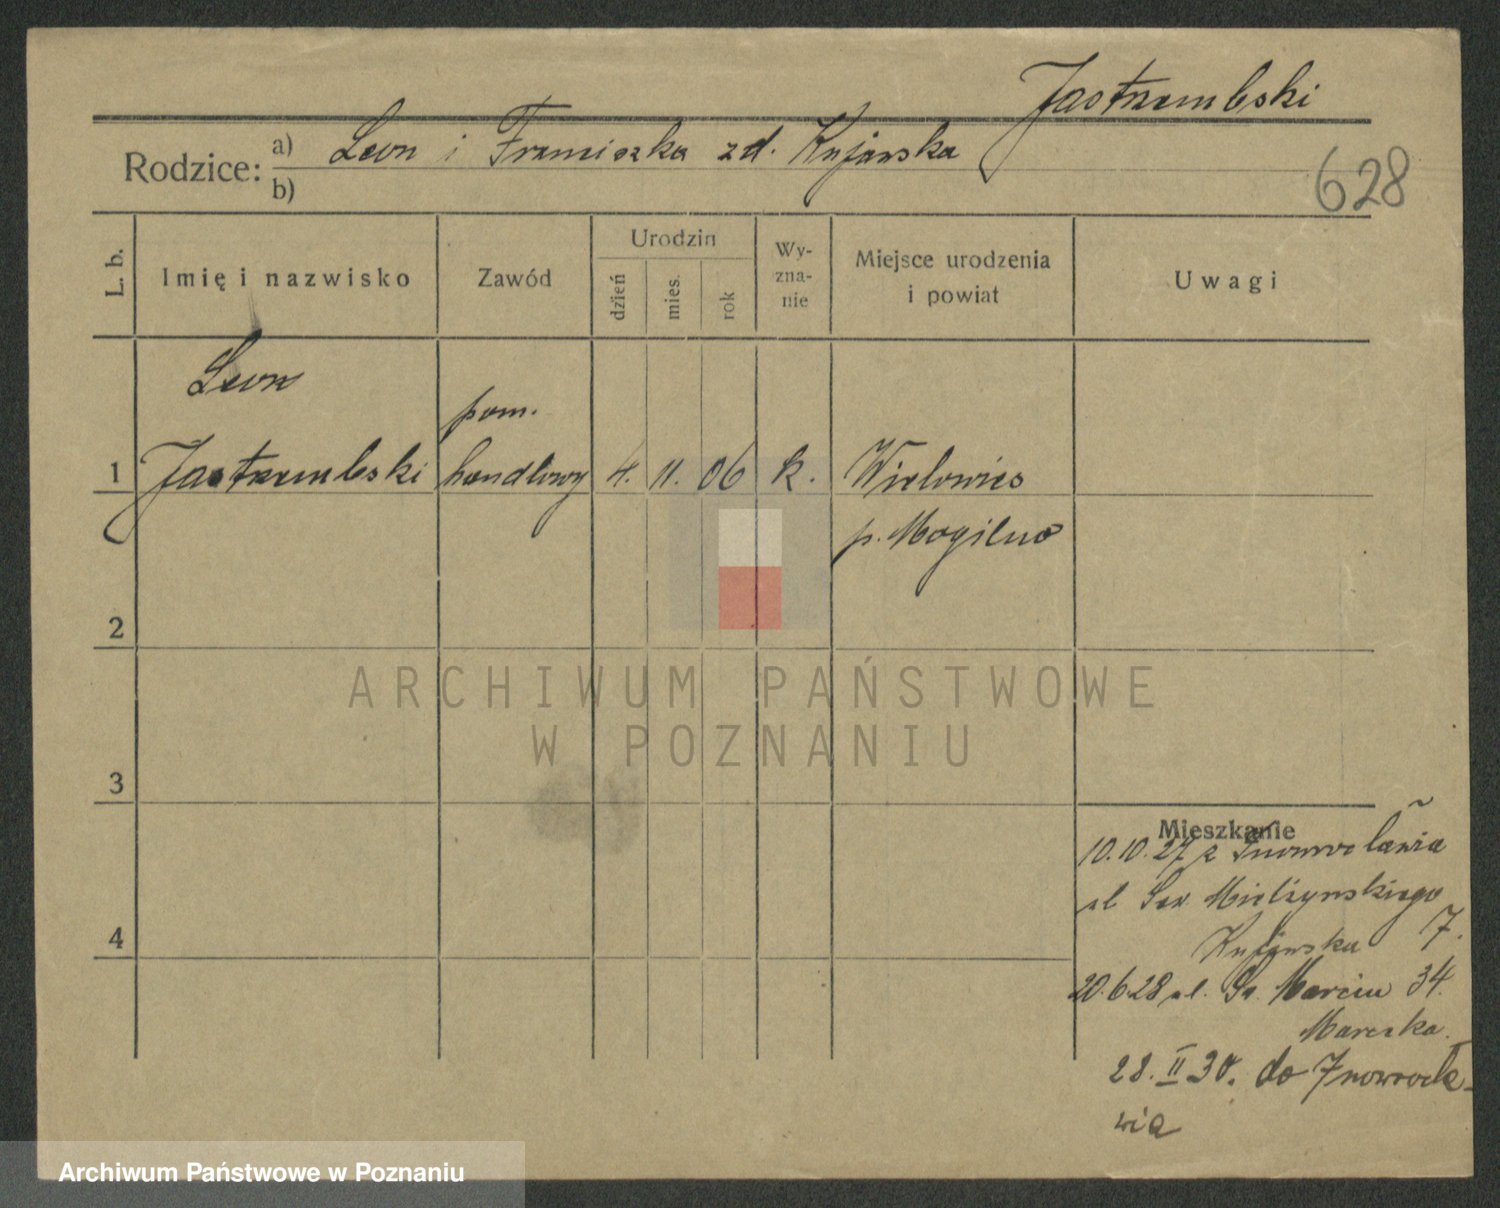 Jastrzembski
Rodzice: a) Leon i Franciszka zd. Kujawska
b)
628
L. b.
Imię i nazwisko
Zawód
Urodzin
dzień
mies.
rok
Wy-
zna-
nie
Miejsce urodzenia
i powiat
Uwagi
Leon
pom.
1 Jastrzembski handlowy 4. 11. 06 k. Wielowieś
p. Mogilno
2
ARCHIWUM PAŃSTWOWE
W POZNANIU
3
Mieszkanie
10.10.27 z Inowrocławia
ul Sew. Mielżyńskiego
Kujawska 7.
4
20.6.28 ul. Św. Marcin 34.
28. II 30. do Inowrocła-
wia
Archiwum Państwowe w Poznaniu